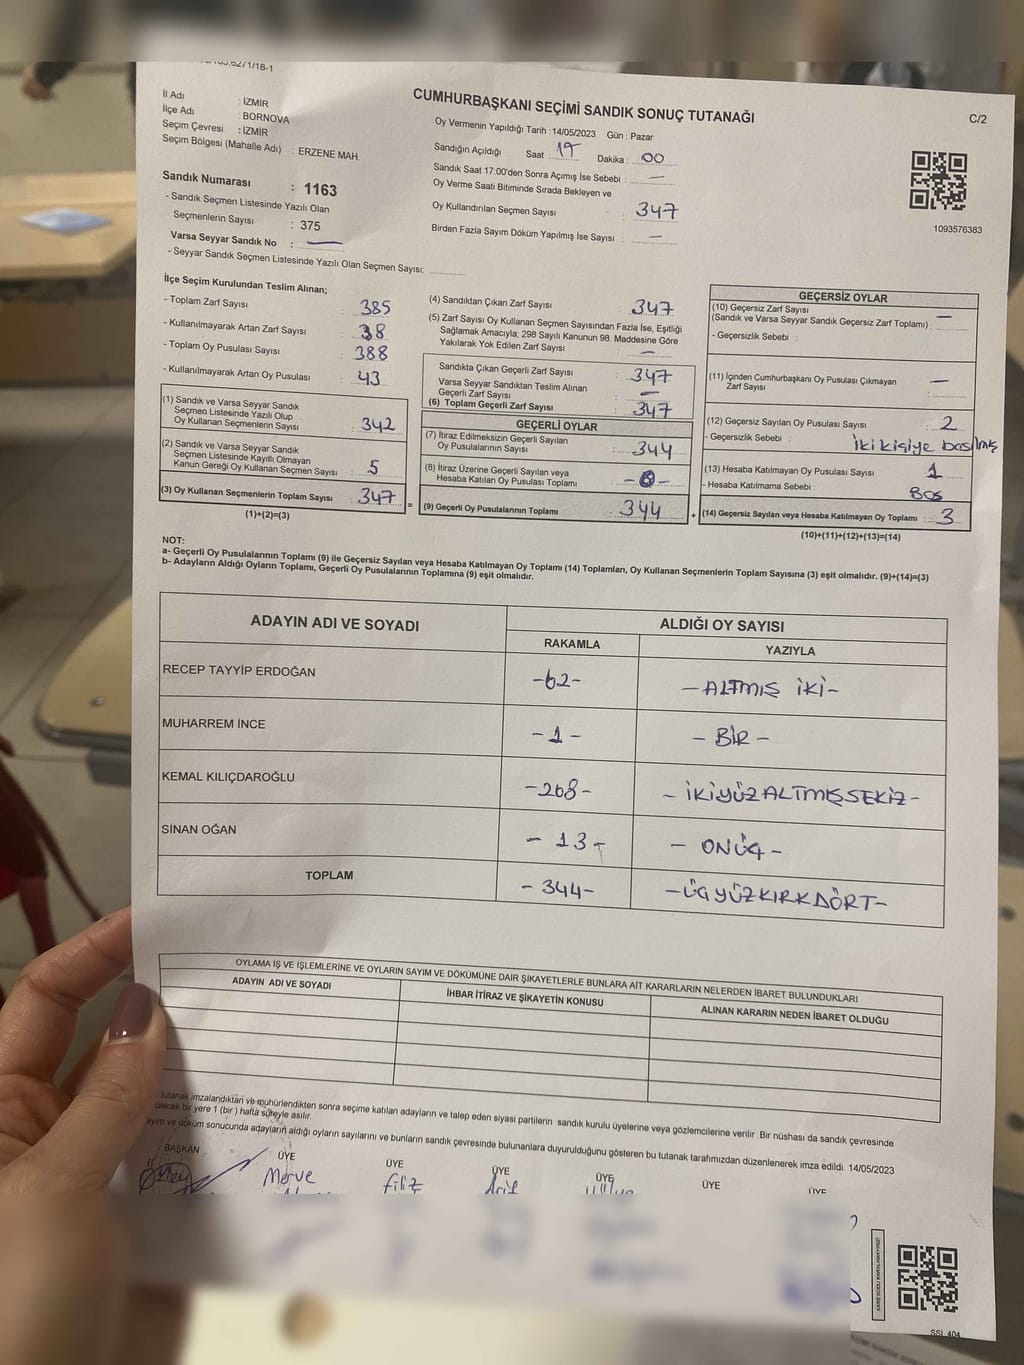 CUMHURBAŞKANI SEÇİMİ SANDIK SONUÇ TUTANAĞI
C/2
İl Adı : İZMİR
İlçe Adı : BORNOVA
Seçim Çevresi : İZMİR
Seçim Bölgesi (Mahalle Adı) : ERZENE MAH.
Sandık Numarası : 1163
- Sandık Seçmen Listesinde Yazılı Olan
Seçmenlerin Sayısı : 375
Varsa Seyyar Sandık No : —
- Seyyar Sandık Seçmen Listesinde Yazılı Olan Seçmen Sayısı:
Oy Vermenin Yapıldığı Tarih :14/05/2023 Gün : Pazar
Sandığın Açıldığı Saat : Dakika : 00
Sandık Saat 17:00'den Sonra Açımış İse Sebebi : —
Oy Verme Saati Bitiminde Sırada Bekleyen ve
Oy Kullandırılan Seçmen Sayısı : 347
Birden Fazla Sayım Döküm Yapılmış İse Sayısı : —
1093576383
İlçe Seçim Kurulundan Teslim Alınan;
- Toplam Zarf Sayısı : 385
- Kullanılmayarak Artan Zarf Sayısı : 38
- Toplam Oy Pusulası Sayısı : 388
- Kullanılmayarak Artan Oy Pusulası : 43
(1) Sandık ve Varsa Seyyar Sandık
Seçmen Listesinde Yazılı Olup
Oy Kullanan Seçmenlerin Sayısı : 342
(2) Sandık ve Varsa Seyyar Sandık
Seçmen Listesinde Kayıtlı Olmayan
Kanun Gereği Oy Kullanan Seçmen Sayısı : 5
(3) Oy Kullanan Seçmenlerin Toplam Sayısı : 347
(1)+(2)=(3)
(4) Sandıktan Çıkan Zarf Sayısı : 347
(5) Zarf Sayısı Oy Kullanan Seçmen Sayısından Fazla İse, Eşitliği
Sağlamak Amacıyla, 298 Sayılı Kanunun 98. Maddesine Göre
Yakılarak Yok Edilen Zarf Sayısı : —
Sandıkta Çıkan Geçerli Zarf Sayısı : 347
Varsa Seyyar Sandıktan Teslim Alınan
Geçerli Zarf Sayısı : —
(6) Toplam Geçerli Zarf Sayısı : 347
GEÇERLİ OYLAR
(7) İtiraz Edilmeksizin Geçerli Sayılan
Oy Pusulalarının Sayısı : 344
(8) İtiraz Üzerine Geçerli Sayılan veya
Hesaba Katılan Oy Pusulası Toplamı : -0-
= (9) Geçerli Oy Pusulalarının Toplamı : 344
GEÇERSİZ OYLAR
(10) Geçersiz Zarf Sayısı
(Sandık ve Varsa Seyyar Sandık Geçersiz Zarf Toplamı) : —
- Geçersizlik Sebebi :
(11) İçinden Cumhurbaşkanı Oy Pusulası Çıkmayan
Zarf Sayısı : —
(12) Geçersiz Sayılan Oy Pusulası Sayısı : 2
- Geçersizlik Sebebi : iki kişiye basılmış
(13) Hesaba Katılmayan Oy Pusulası Sayısı : 1
- Hesaba Katılmama Sebebi : Boş
+ (14) Geçersiz Sayılan veya Hesaba Katılmayan Oy Toplamı : 3
(10)+(11)+(12)+(13)=(14)
NOT:
a- Geçerli Oy Pusulalarının Toplamı (9) ile Geçersiz Sayılan veya Hesaba Katılmayan Oy Toplamı (14) Toplamları, Oy Kullanan Seçmenlerin Toplam Sayısına (3) eşit olmalıdır. (9)+(14)=(3)
b- Adayların Aldığı Oyların Toplamı, Geçerli Oy Pusulalarının Toplamına (9) eşit olmalıdır.
ADAYIN ADI VE SOYADI ALDIĞI OY SAYISI
RAKAMLA YAZIYLA
RECEP TAYYİP ERDOĞAN -62- -ALTMIŞ İKİ-
MUHARREM İNCE -1- -BİR-
KEMAL KILIÇDAROĞLU -268- -İKİYÜZALTMIŞSEKİZ-
SİNAN OĞAN -13- -ONÜÇ-
TOPLAM -344- -ÜÇYÜZKIRKDÖRT-
OYLAMA İŞ VE İŞLEMLERİNE VE OYLARIN SAYIM VE DÖKÜMÜNE DAİR ŞİKAYETLERLE BUNLARA AİT KARARLARIN NELERDEN İBARET BULUNDUKLARI
ADAYIN ADI VE SOYADI İHBAR İTİRAZ VE ŞİKAYETİN KONUSU ALINAN KARARIN NEDEN İBARET OLDUĞU
tutanak imzalandıktan ve mühürlendikten sonra seçime katılan adayların ve talep eden siyasi partilerin sandık kurulu üyelerine veya gözlemcilerine verilir. Bir nüshası da sandık çevresinde
bir yere 1 (bir) hafta süreyle asılır.
ve döküm sonucunda adayların aldığı oyların sayılarını ve bunların sandık çevresinde bulunanlara duyurulduğunu gösteren bu tutanak tarafımızdan düzenlenerek imza edildi. 14/05/2023
BAŞKAN ÜYE ÜYE ÜYE ÜYE ÜYE ÜYE
Merve Filiz Arif
SSL 404